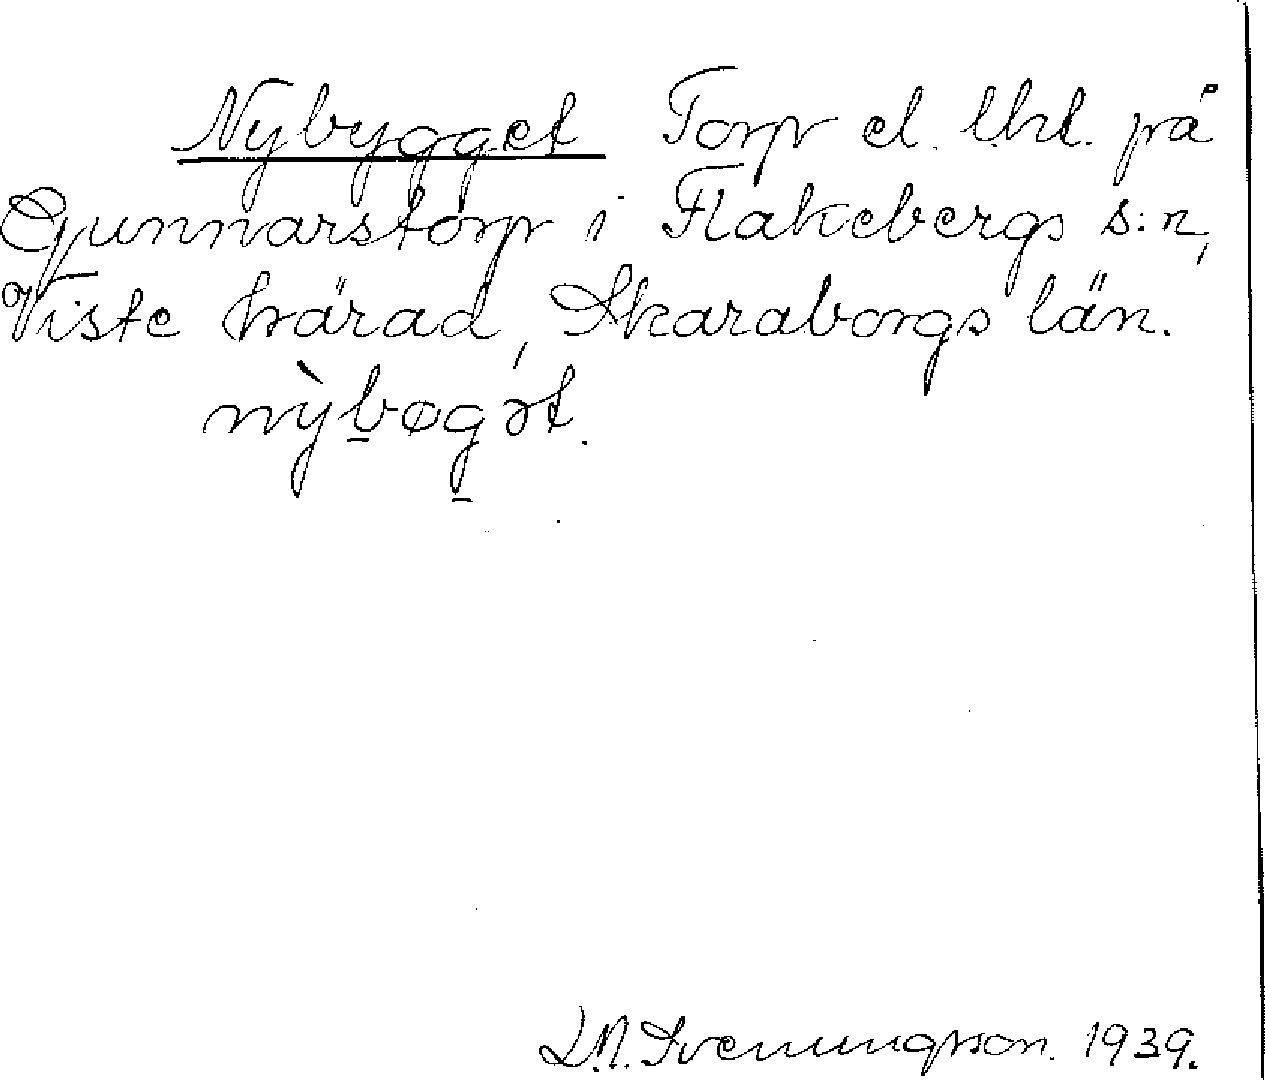 Nybygget Torp el. lht. på
Gunnarstorp i Flakebergs s:n,
Viste härad, Skaraborgs län.
nỳb̲øg̲ət.
D.N. Svenungsson. 1939.